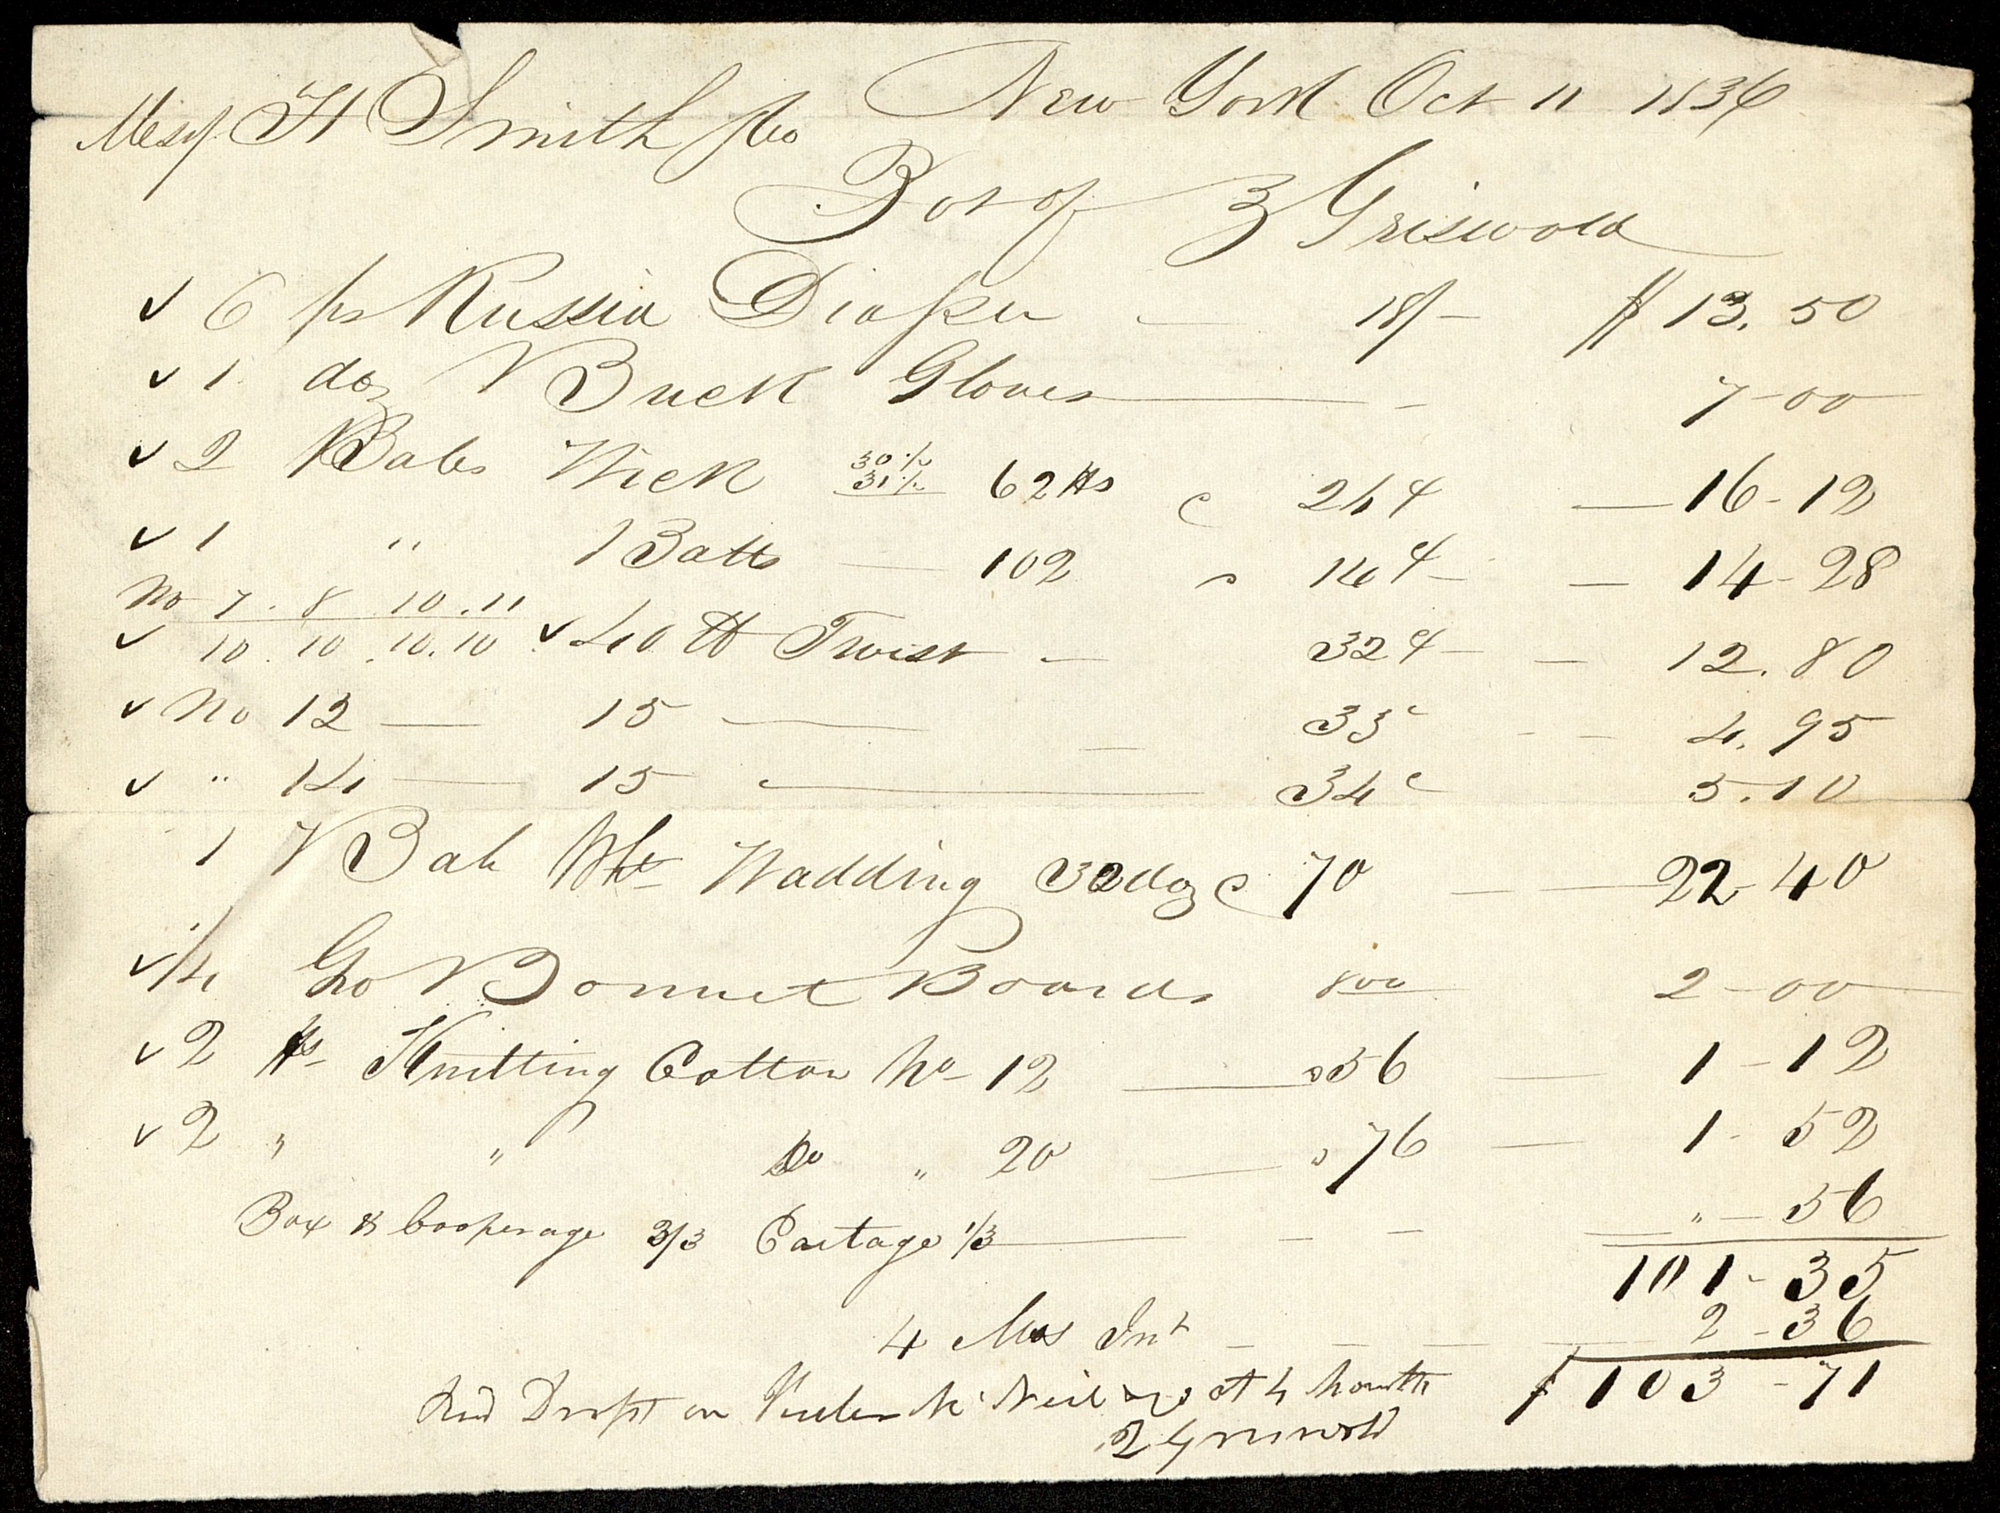 New York Oct 11 1836
Messrs H Smith & Co
Bot of Z Griswold
✓ 6 ps Russia Diaper — 18/- $13.50
✓ 1 doz Buck Gloves — 7-00
✓ 2 Bales Wick 30 31 62 lbs @ 26¢ — 16-12
✓ 1 " Batts — 102 " 14¢ — 14-28
No 7. 8 10. 11
✓ 10. 10. 10. 10 ✓ 40 lb Twist — 32¢ — 12.80
✓ No 12 — 15 — 33c — 4.95
✓ " 14 — 15 — 34c 5.10
1 Bale Wht Wadding 32 doz @ 70 — 22-40
✓ 1/4 Gro Bonnet Boards 800 2-00
✓ 2 lbs Knitting Cotton No 12 — 56 — 1-12
✓ 2 " " Do " 20 — 76 — 1-52
Box & Cooperage 3/3 Cartage 1/3 — " - 56
101-35
4 Mos Int — 2-36
$103-71
Recd Draft on at 4 months
Z Griswold